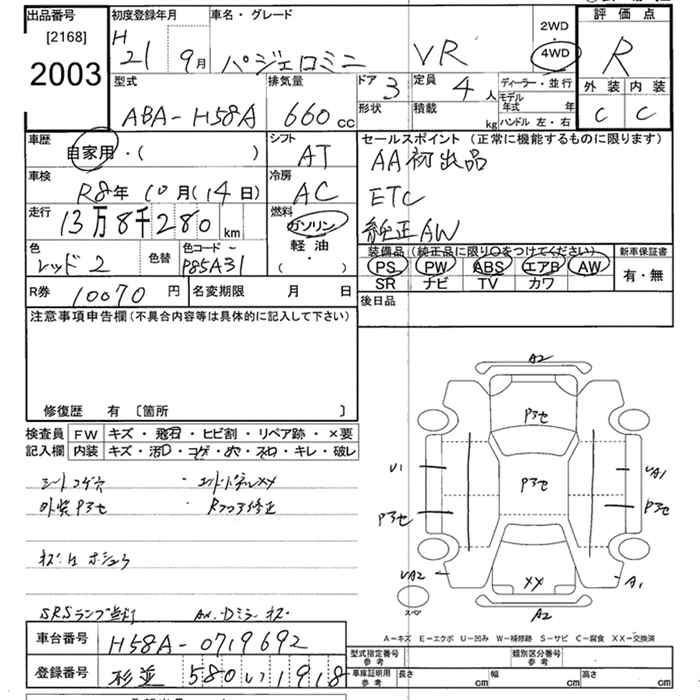 出品番号 [2168] 2003
初度登録年月 H 21 9月
車名・グレード パジェロミニ VR
2WD 4WD
評価点 R
外装 C 内装 C
型式 ABA-H58A
排気量 660 cc
ドア 3 定員 4人
形状 積載 kg
ディーラー・並行
モデル年式 年
ハンドル 左・右
車歴 自家用・( )
シフト AT
セールスポイント(正常に機能するものに限ります)
AA初出品
ETC
純正AW
車検 R8年 10月(14日)
冷房 AC
走行 13万8千280km
燃料 ガソリン 軽油 ・( )
色 レッド2 色替 色コード P85A31
装備品(純正品に限り○をつけてください)
PS PW ABS エアB AW
SR ナビ TV カワ
新車保証書 有・無
R券 10070円 名変期限 月 日
後日品
注意事項申告欄(不具合内容等は具体的に記入して下さい)
修復歴 有 〔箇所 〕
検査員記入欄
FW キズ・飛石・ヒビ割・リペア跡・×要
内装 キズ・汚D・コゲ・穴・スレ・キレ・破レ
シートコゲ穴
外装Pヌセ ・Rフロア修正
SRSランプ点灯
車台番号 H58A-0719692
登録番号 杉並 580 い 1918
A2
Pヌセ
U1 Pヌセ UA1
Pヌセ Pヌセ
UA2 XX A1
スペア A2
A-キズ E-エクボ U-凹み W-補修跡 S-サビ C-腐食 XX-交換済
型式指定番号 参考 類別区分番号 参考
車庫証明用 参考 長さ cm 幅 cm 高さ cm